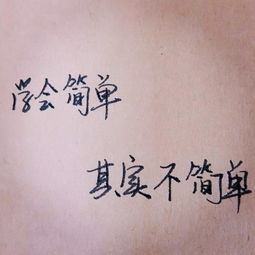 学会简单
其实不简单